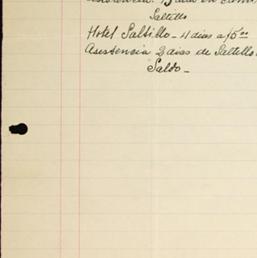 dias en
Saltillo
Hotel Saltillo - 4 dias a 15 00
Asistencia 2 dias de Saltillo
Saldo -